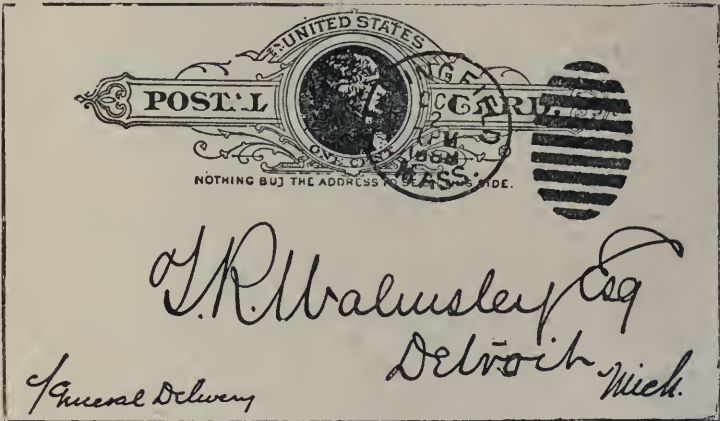 UNITED STATES
POSTAL CARD.
ONE CENT
NGFIELD
2
PM
MASS.
NOTHING BUT THE ADDRESS TO BE ON THIS SIDE.
T.R. Walmsley Esq
Detroit Mich.
c/ General Delivery